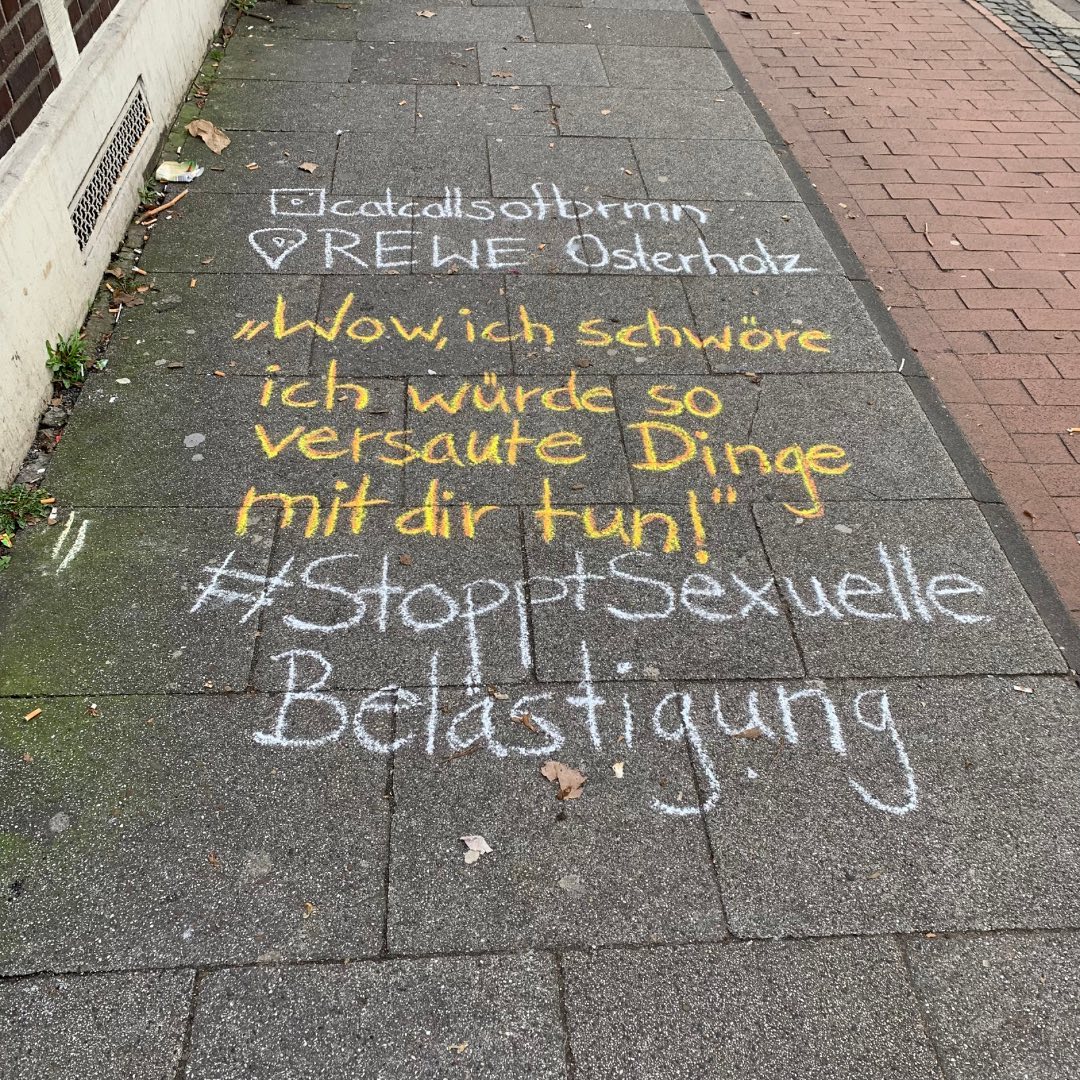 catcallsofbrmn
REWE Osterholz
„Wow, ich schwöre
ich würde so
versaute Dinge
mit dir tun!"
#StopptSexuelle
Belästigung